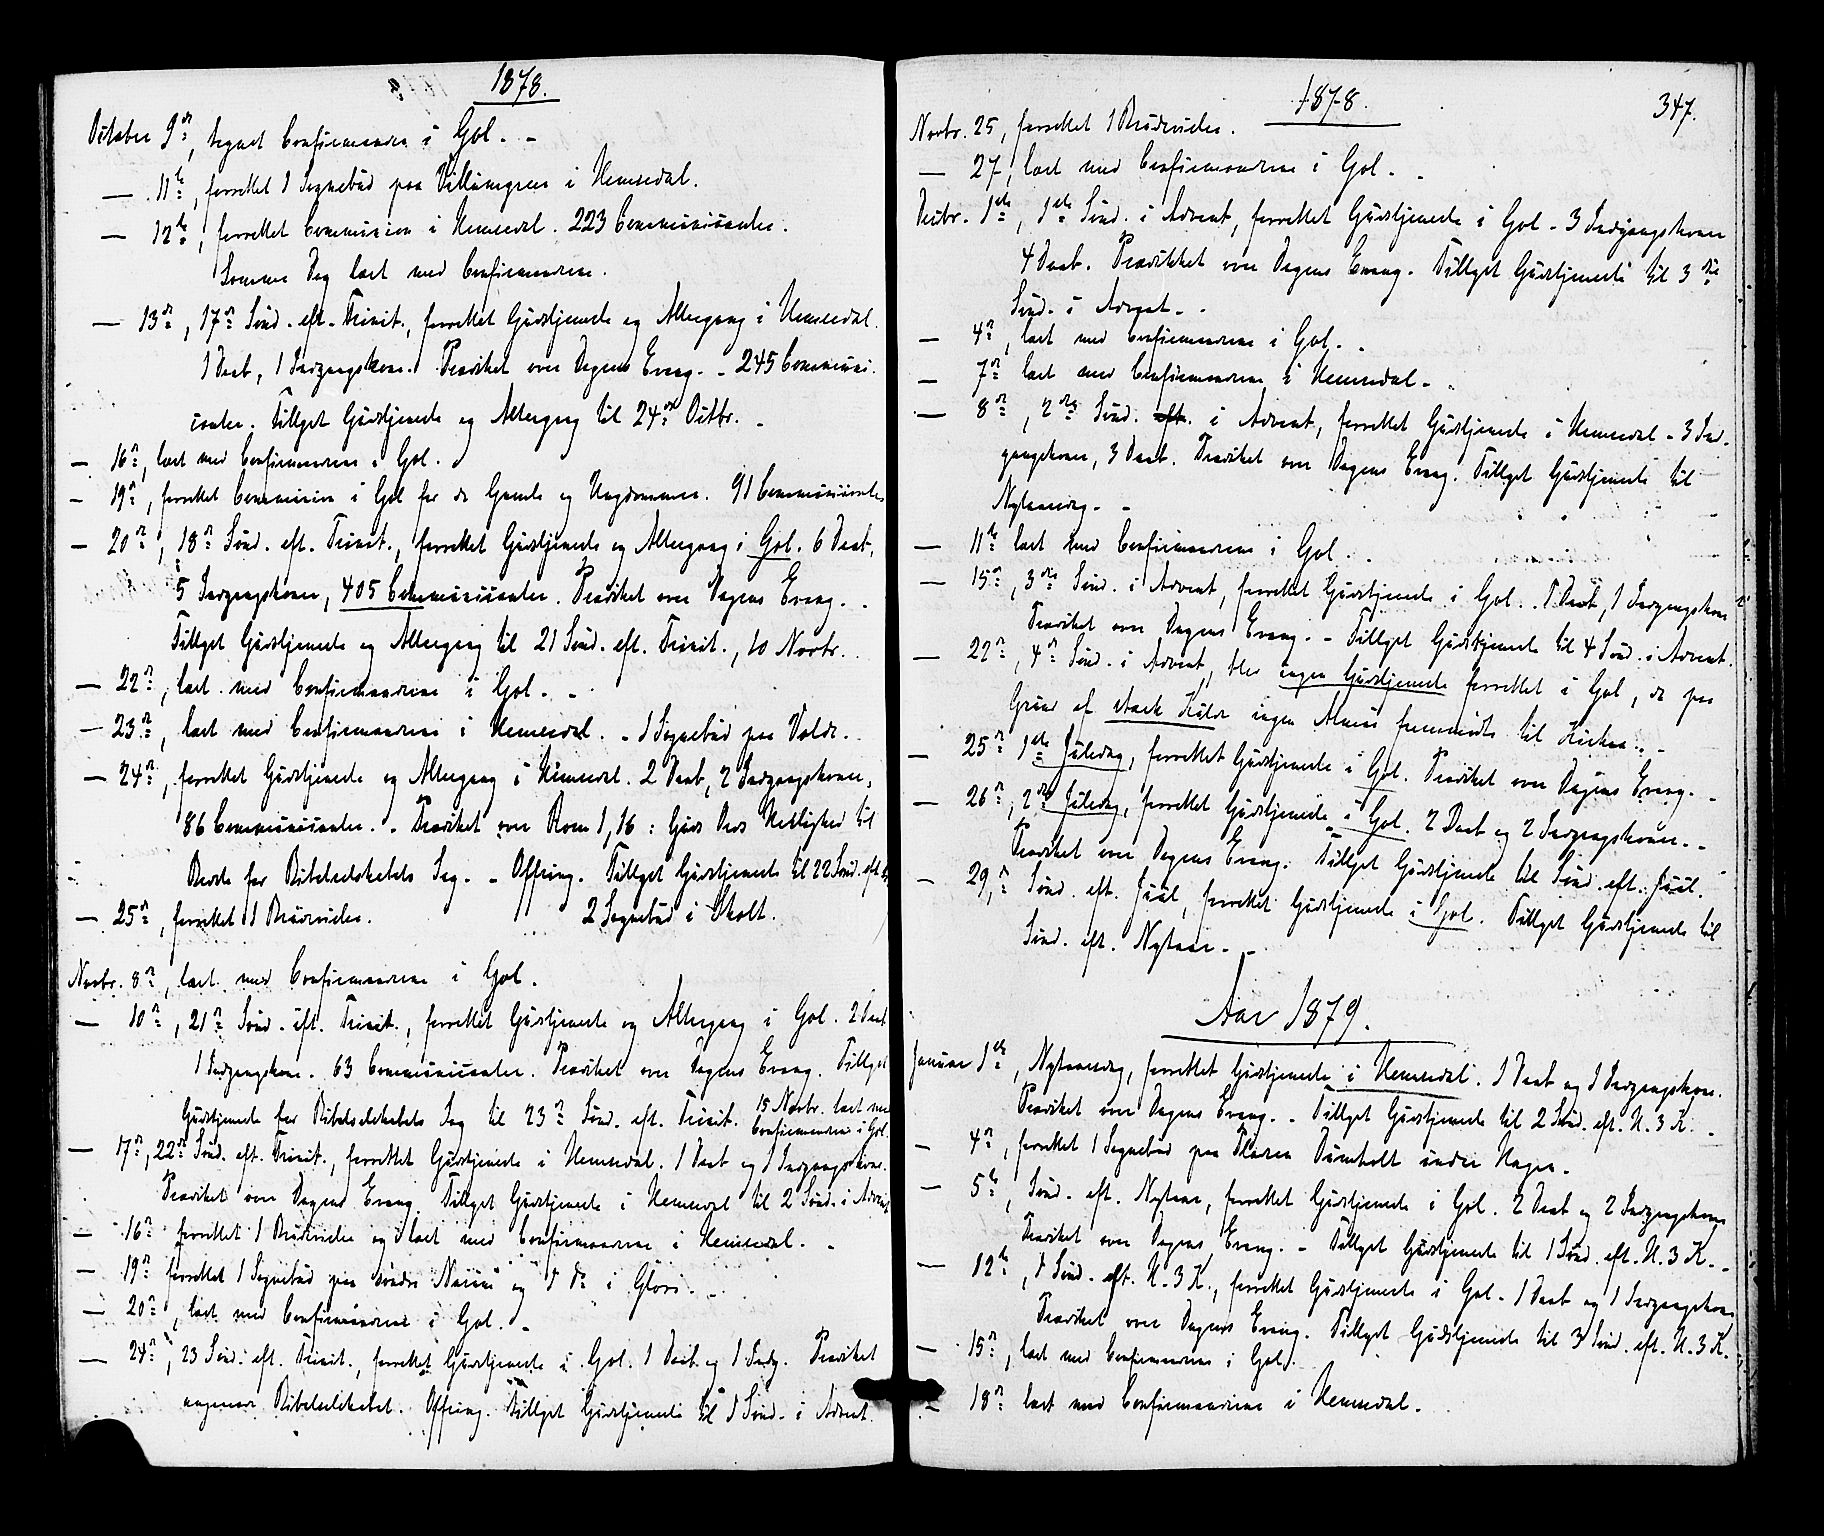 1878.
October 9de, begynt Confirmanderne i Gol. -
— 11te, forrettet 1 Sognebud paa i Hemsedal.
— 12te, forrettet Communion i Hemsedal. 223 Communicanter.
Samme Dag læst med Confirmanderne.
— 13de, 17de Sønd. eft. Trinit., forrettet Gudstjeneste og Altergang i Hemsedal.
1 Daab, 1 Indgangskone. Prædiket over Dagens Evang. - 245 Communi-
canter. Tillyst Gudstjeneste og Altergang til 24de Octbr. -
— 16de, læst med Confirmanderne i Gol.
— 19de, forrettet Communion i Gol for de Gamle og Ungdommen. 91 Communicanter
— 20de, 18de Sønd. eft. Trinit., forrettet Gudstjeneste og Altergang i Gol. 6 Daab,
5 Indgangskoner, 405 Communicanter. Prædiket over Dagens Evang. -
Tillyst Gudstjeneste og Altergang til 21 Sønd. eft. Trinit., 10 Novbr.
— 22de, læst med Confirmanderne i Gol. -
— 23de, læst med Confirmanderne i Hemsedal. - 1 Sognebud paa
— 24de, forrettet Gudstjeneste og Altergang i Hemsedal. 2 Daab, 2 Indgangskoner,
86 Communicanter. - Prædiket over Rom 1,16: Guds Ords Hellighed til
Bedste for Bibelselskabets Sag. - Offring. Tillyst Gudstjeneste til 22 Sønd. eft
— 25de, forrettet 1 Brudevielse. 2 Sognebud i
Novbr. 8de, læst med Confirmanderne i Gol.
— 10de, 21de Sønd. eft. Trinit., forrettet Gudstjeneste og Altergang i Gol. 2 Daab
1 Indgangskone. 63 Communicanter. Prædiket over Dagens Evang. Tillyst
Gudstjeneste for Bibelselskabets Sag til 23de Sønd. eft. Trinit. 15 Novbr. læst med
Confirmanderne i Gol.
— 17de, 22de Sønd. eft. Trinit., forrettet Gudstjeneste i Hemsedal. 1 Daab og 1 Indgangskone.
Prædiket over Dagens Evang. Tillyst Gudstjeneste i Hemsedal til 2 Sønd. i Advent
— 16de forrettet 1 Brudevielse og læst med Confirmanderne i Hemsedal. -
— 19de forrettet 1 Sognebud paa søndre og 1 do i
— 20de, læst med Confirmanderne i Gol. -
— 24de, 23 Sønd. eft. Trinit., forrettet Gudstjeneste i Gol. 1 Daab og 1 Indg. Prædiket
angaaende Bibelselskabet. Offring. Tillyst Gudstjeneste til 1 Sønd. i Advent.
1878.
347.
Novbr. 25, forrettet 1 Brudevielse.
— 27, læst med Confirmanderne i Gol. -
Decbr. 1ste, 1ste Sønd. i Advent, forrettet Gudstjeneste i Gol - 3 Indgangskoner
4 Daab. Prædikket over Dagens Evang. Tillyst Gudstjeneste til 3die
Sønd. i Advent. -
— 4de, læst med Confirmanderne i Gol. -
— 7de læst med Confirmanderne i Hemsedal. -
— 8de, 2den Sønd. eft. i Advent, forrettet Gudstjeneste i Hemsedal - 3 Ind-
gangskoner, 3 Daab. Prædiket over Dagens Evang. Tillyst Gudstjeneste til
Nytaarsdag. -
— 11te læst med Confirmanderne i Gol.
— 15de, 3die Sønd. i Advent, forrettet Gudstjeneste i Gol. 1 Daab, 1 Indgangskone
Prædiket over Dagens Evang. - Tillyst Gudstjeneste til 4 Sønd. i Advent.
— 22de, 4de Sønd. i Advent, blev ingen Gudstjeneste forrettet i Gol, da paa
Grund af stærk Kulde ingen Almue fremmødte til Kirken. -
— 25de 1ste Juledag, forrettet Gudstjeneste i Gol. Prædiket over Dagens Evang. -
— 26de, 2den Juledag, forrettet Gudstjeneste i Gol. 2 Daab og 2 Indgangskoner. -
Prædiket over Dagens Evang. Tillyst Gudstjeneste til Sønd. eft. Juul.
— 29de, Sønd. eft. Juul, forrettet Gudstjeneste i Gol. Tillyst Gudstjeneste til
Sønd. eft. Nytaar. -
Aar 1879.
Januar 1ste, Nytaarsdag, forrettet Gudstjeneste i Hemsedal. 1 Daab og 1 Indgangskone.
Prædiket over Dagens Evang. - Tillyst Gudstjeneste til 2 Sønd. eft. H. 3 K. -
— 4de, forrettet 1 Sognebud paa Pladsen under
— 5te, Sønd. eft. Nytaar, forrettet Gudstjeneste i Gol. 2 Daab og 2 Indgangskoner
Prædiket over Dagens Evang. - Tillyst Gudstjeneste til 1 Sønd. eft. H. 3 K. -
— 12te, 1 Sønd. eft. H. 3 K., forrettet Gudstjeneste i Gol - 1 Daab og 1 Indgangskone
Prædiket over Dagens Evang. Tillyst Gudstjeneste til 3 Sønd. eft. H. 3 K.
— 15de, læst med Confirmanderne i Gol.
— 18de læst med Confirmanderne i Hemsedal.